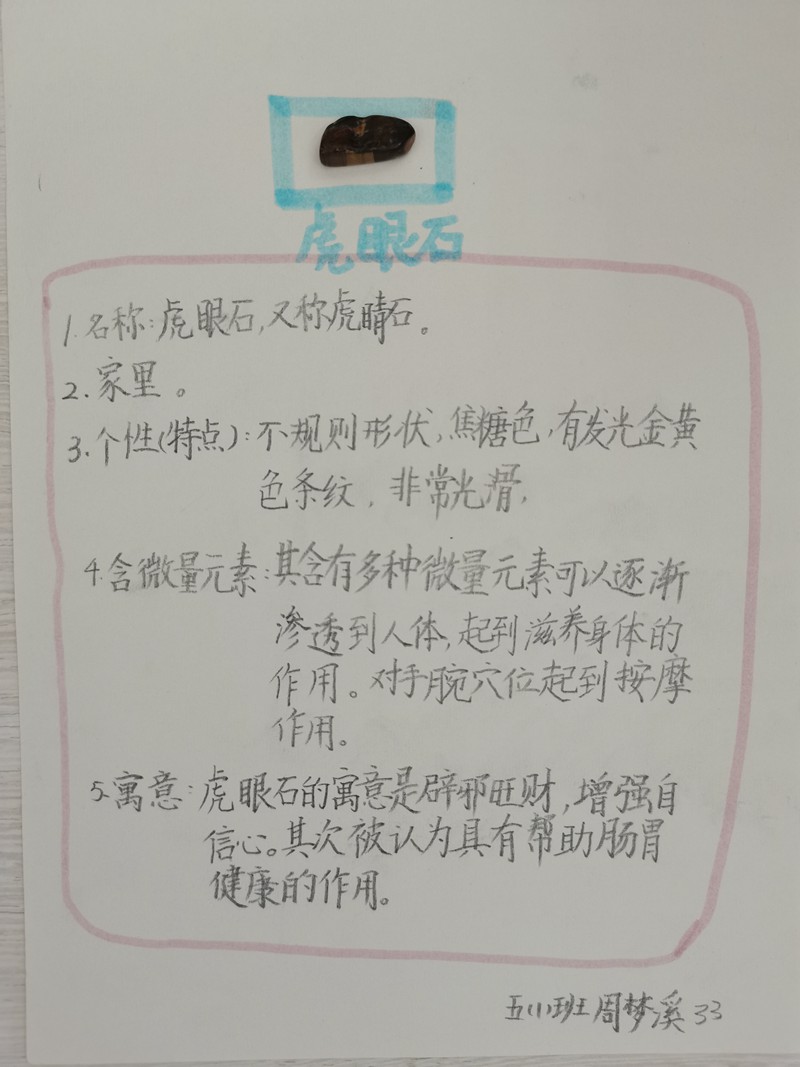 虎眼石
1.名称:虎眼石,又称虎睛石。
2.家里。
3.个性(特点):不规则形状,焦糖色,有发光金黄
色条纹,非常光滑,
4.含微量元素:其含有多种微量元素可以逐渐
渗透到人体,起到滋养身体的
作用。对手腕穴位起到按摩
作用。
5.寓意:虎眼石的寓意是辟邪旺财,增强自
信心。其次被认为具有帮助肠胃
健康的作用。
五(1)班周梦溪33